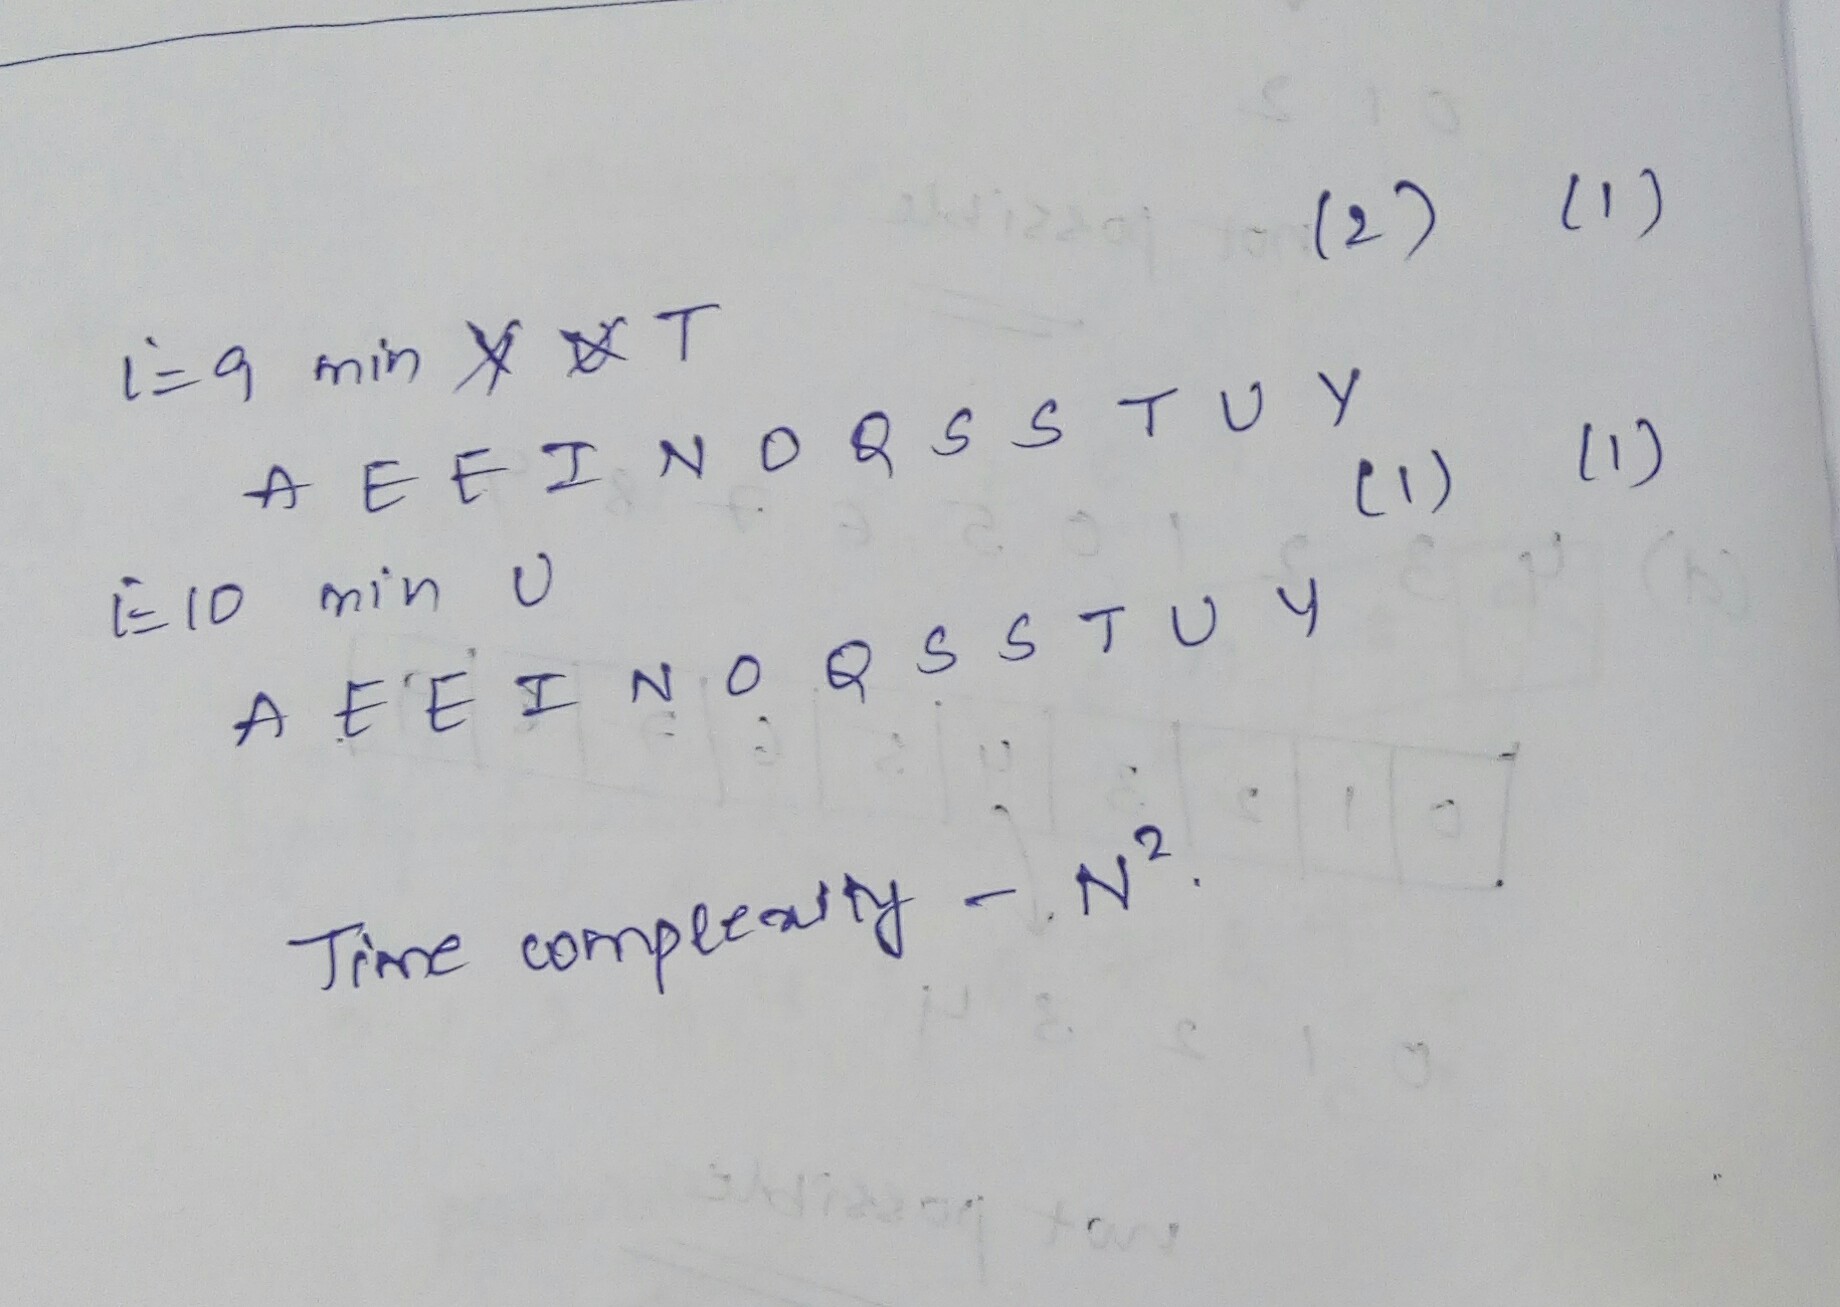 (2) (1)
i=9 min T
A E E I N O Q S S T U Y
(1) (1)
i=10 min U
A E E I N O Q S S T U Y
Time complexity - N².